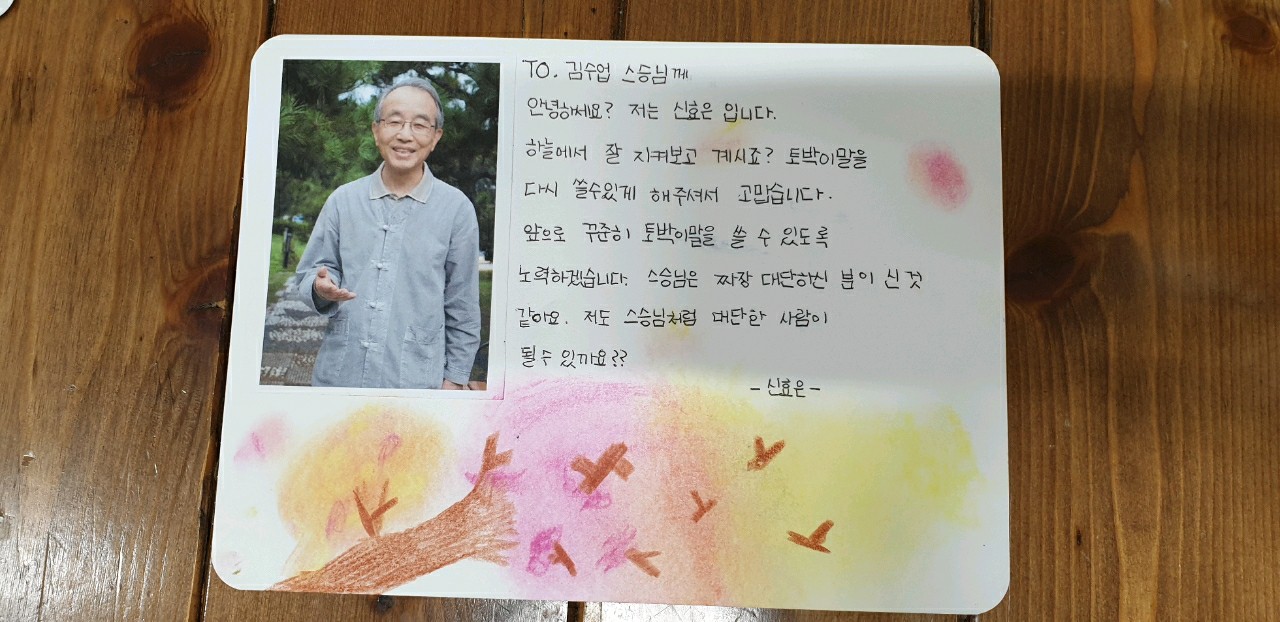 TO. 김수업 스승님께
안녕하세요? 저는 신효은 입니다.
하늘에서 잘 지켜보고 계시죠? 토박이말을
다시 쓸수있게 해주셔서 고맙습니다.
앞으로 꾸준히 토박이말을 쓸 수 있도록
노력하겠습니다. 스승님은 짜장 대단하신 분이 신 것
같아요. 저도 스승님처럼 대단한 사람이
될 수 있까요??
- 신효은 -